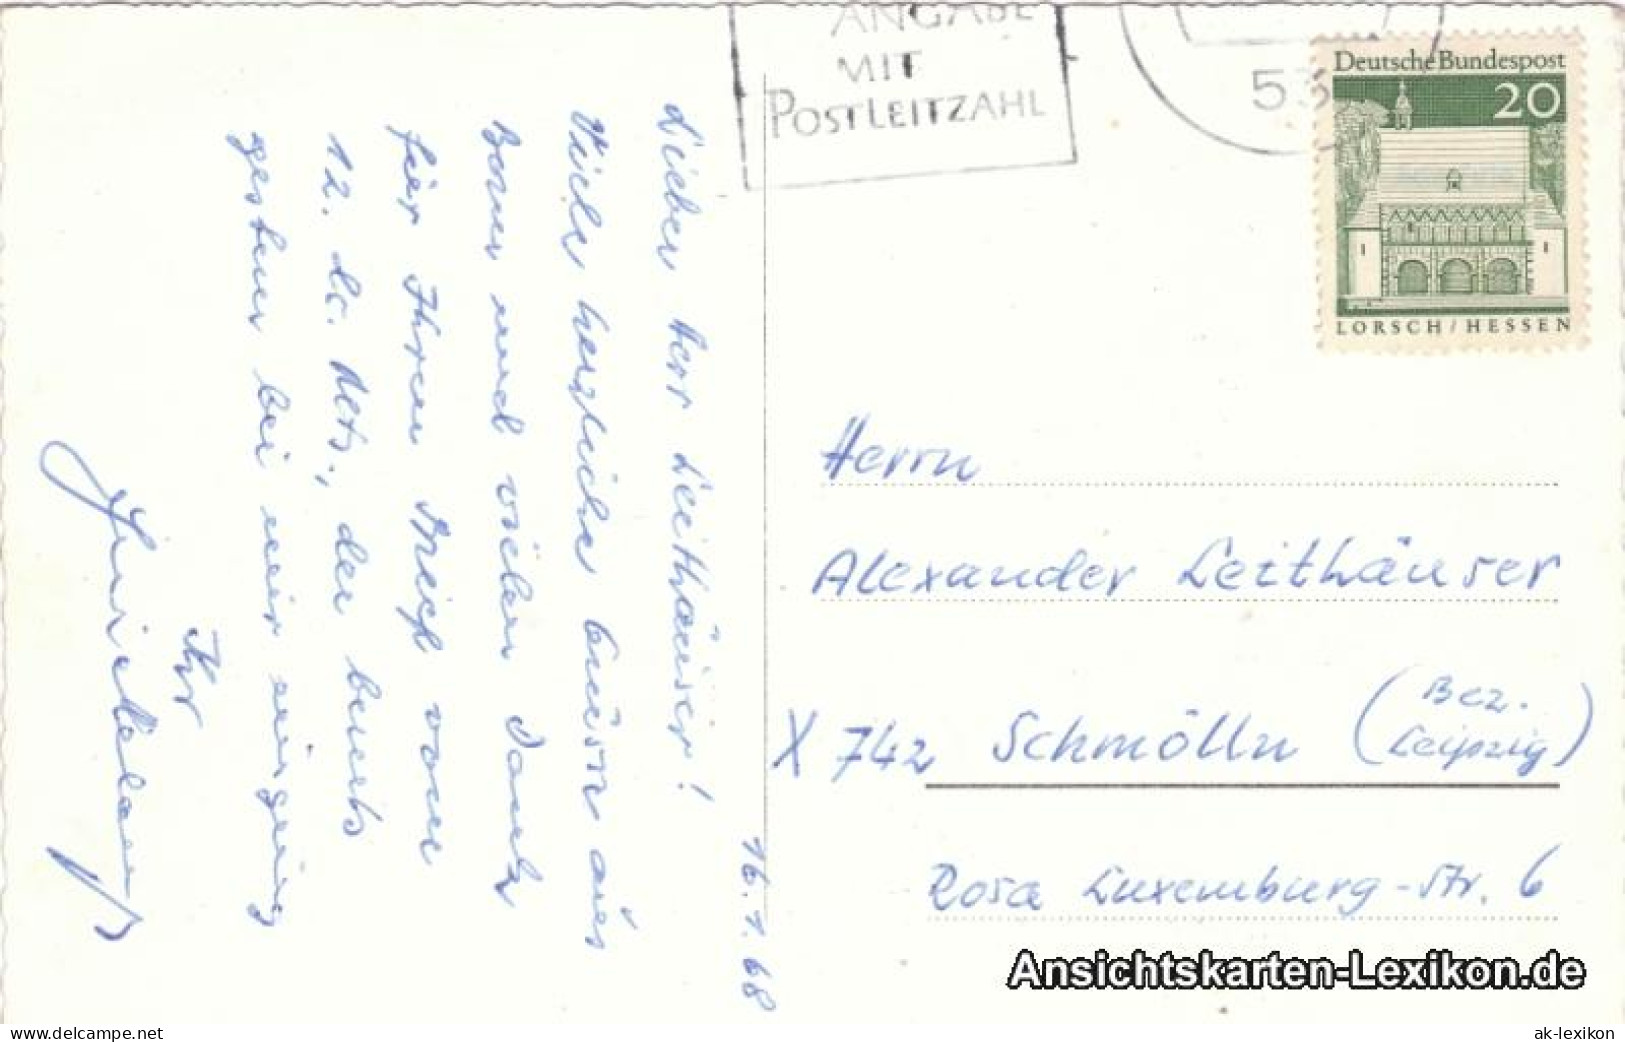 ANGABE
MIT
POSTLEITZAHL
53
Deutsche Bundespost
20
LORSCH / HESSEN
16.1.68
Lieber Herr Leithäuser!
Viele herzliche Grüsse aus
Bonn und vielen Dank
für Ihren Brief vom
12. ds. Mts., der bereits
gestern bei mir einging
Ihr
Herrn
Alexander Leithäuser
X 742 Schmölln (Bez. Leipzig)
Rosa Luxemburg-Str. 6
Ansichtskarten-Lexikon.de
www.delcampe.net
ak-lexikon